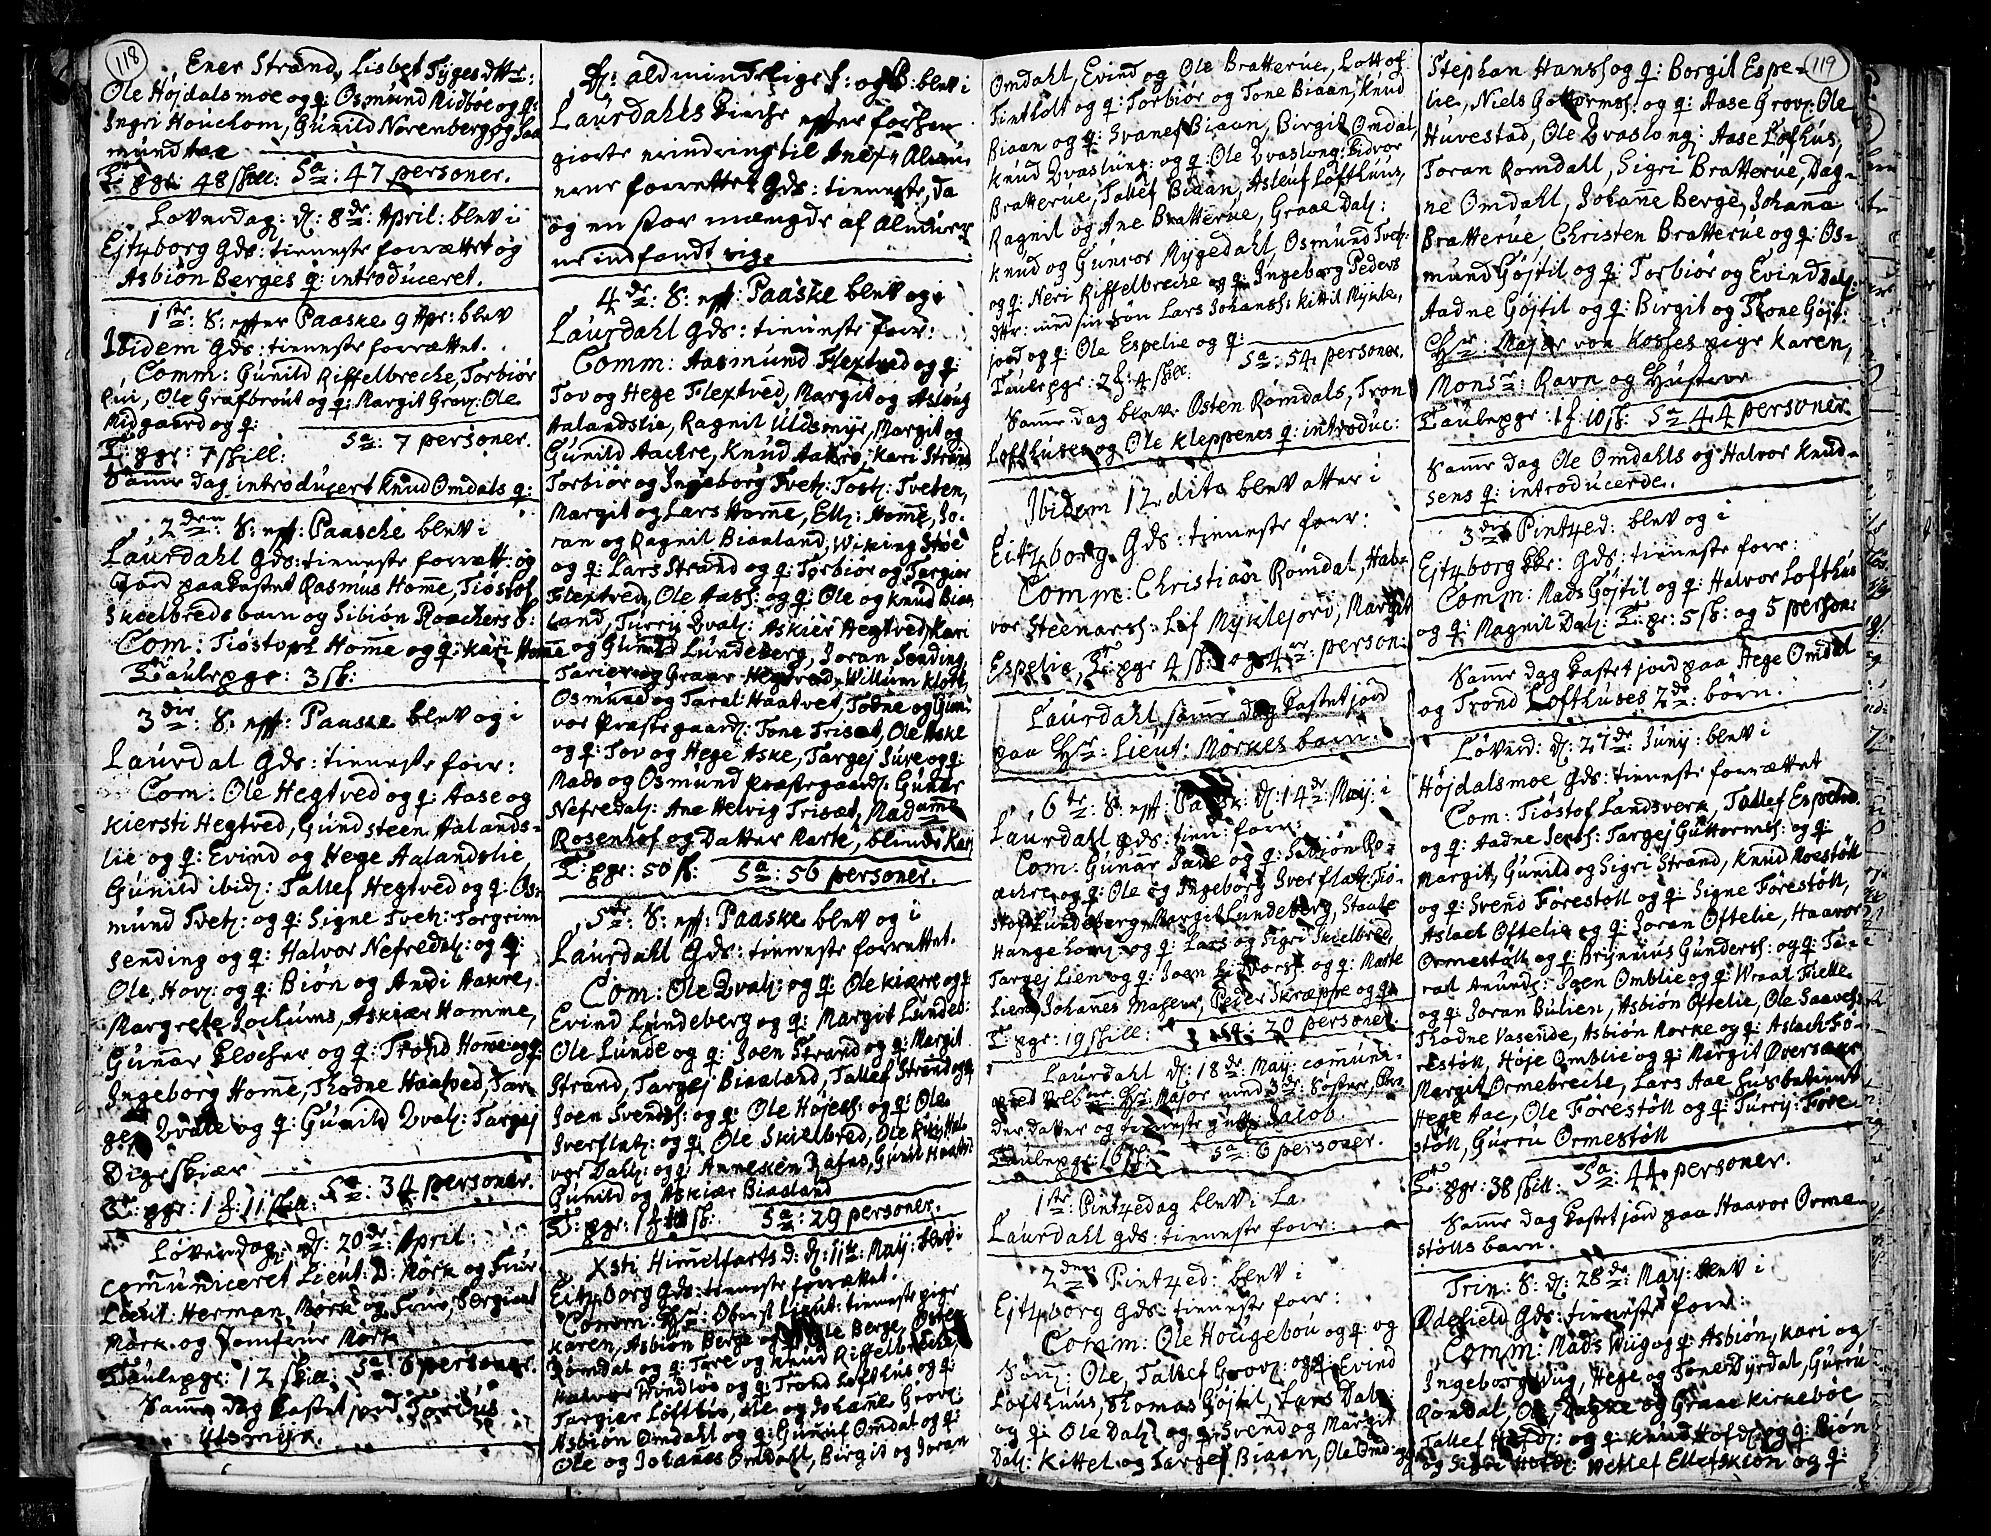 118
Ener Strand, Lisbet Tÿgesdttr:
Ole Höjdalsmoe og q: Osmund Midböe og q:
Ingri Houchom, Gunild Norenberg og Saa
mund Aae
T: pge: 48 skill: Sa: 47 personer.
Löverdag: d: 8de: April: blev i
Ejtzborg Gds: tienneste forrættet og
Asbiön Berges q: introduceret.
1ste: S: efter Paaske 9 Apr: blev
Ibidem Gds: tienneste forrættet.
Comm: Gunild Riffelbreche, Torbiör
Lii, Ole Grafbrout og q: Margit Grov: Ole
Midgaard og q:
T: pge: 7 skill: Sa: 7 personer.
Samme Dag introducert Knud Omdals q:
2den: S: eft: Paasche blev i
Laurdahl Gds: tienneste forrætt: og
Jord paakastet Rasmus Homme, Tiöstof
Skielbreds barn og Sibiön Roachers b:
Com: Tiöstoph Homme og q: Kari Homme
Taulepge: 3 sk:
3die: S: eft: Paaske blev og i
Laurdal Gds: tienneste forr:
Com: Ole Hegtved og q: Aase og
Kiersti Hegtved, Gundsteen Aalands-
lie og q: Evind og Hege Aalandslie
Gunild ibid: Tallef Hegtved og q: Os-
mund Tvet: og q: Signe Tvet: Torgrim
Sending og q: Halvor Nefredal: og q:
Ole, Hov: og q: Biön og Andi Aakre,
Margrete Jochums, Askiær Homme,
Gunnar Klocher og q: Trond Homme og q:
Ingeborg Homme, Thodne Haatved, Tar-
gej Dvale og q: Gunild Dval: Targej
Digeskiær
T: pge: 1 f: 11 skill: Sa: 34 personer.
Löverdag: d: 20de: April:
communiceret Lieut: D: Mörk og Frue,
Lieut: Herman Mörk og Frue, Sergiant
Mörk og Jomfrue Mörk
Taulepge: 12 skill: Sa: 6 personer.
Samme Dag kastet jord Torbiös
Utsmyk.
D: aldmindelige F: og B: blev i
Laurdahls Kirche efter forhen
giorte erindring til
forrettet Gds: tienneste, da
og en stor mængde af
indfandt sig.
4de: S: eft: Paaske blev og i
Laurdahl Gds: tienneste forr:
Comm: Aasmund Flextved og q:
Tov og Hege Flextved, Margit og Aslaug
Aalandslie, Ragnil Uldsmyr, Margit og
Gunild Aachre, Knud Aakre, Kari Strönd
Torbiör og Ingeborg Tvet: Tost: Tveten,
Margit og Lars Homme, Ell: Homme, Jo-
ran og Ragnil Biaaland, Wiking Stöe
og q: Lars Strand og q: Torbiör og Targier
Flextved, Ole Aass: og q: Ole og Knud Biaa-
land, Turru Dval: Askier Hegtved, Kari
og Gunild Lundeberg, Joran Sending,
Tarier og Graar Hegtved, Willum Klott,
Osmund og Taral Haatvet, Todne og Gun-
vor Præstegaard: Tone Trisæt, Ole Aske
og q: Tov og Hege Aske, Targej Sure og q:
Mads og Osmund Præstegaard: Gunar
Nefredal: Ane Helvig Trisæt, Madame
Rosenhof og Datter Marte, blinde Kari
T: pge: 50 sk: Sa: 56 personer.
5te: S: eft: Paaske blev og i
Laurdahl Gds: tienneste forrættet.
Com: Ole Dval: og q: Ole Kiære og q:
Evind Lundeberg og q: Margit Lundeb:
Ole Lunde og q: Joen Strand og q: Margit
Strand, Targej Biaaland, Tallef Strand og q:
Joen Svends: og q: Ole Höjes: og q: Ole
Sverflat: og q: Ole Skielbred, Ole
Dal: og q: Anneken Rafns, Gunil Haatv:
Gunild og Askiær Biaaland
T: pge: 1 f 10 sk: Sa: 29 personer.
Xsti Himmelfarts d: d: 11te: May: blev i
Ejtzborg Gds: tienneste forrættet.
Comm: Hr: Oberst Lieut: tienneste pige
Karen, Asbiön Berge og q: Ole Berge, Osten
Romdal og q: Tore og Knud Riffelbreche,
Halvor og q: Trond Lofthus og q:
Targier Lofthus, Ole og Johanne Grov:
Asbiön Omdahl og q: Gunuf Omdal og q:
Ole og Johanes Omdahl, Birgit og Joran
Omdahl, Evind og Ole Bratterue, Lottof
Tintholt og q: Torbiör og Tone Biaan, Knud
Biaan og q: Svanef Biaan, Birgit Omdal,
Knud Dvaslong: og q: Ole Dvaslong: Lidvor
Bratterue, Tallef Biaan, Asleuf Lofthuus,
Ragnil og Ane Bratterue, Graae Dal:
Knud og Gunvor Nygedahl, Osmund Tvet:
og q: Neri Riffelbreche og q: Ingeborg Peders
dttr: med sin Sön Lars Johans: Kittil Mykle-
jord og q: Ole Espelie og q:
Taulepge: 2 f: 4 skil: Sa: 54 personer.
Samme Dag bleve Osten Romdals, Tron
Lofthuses og Ole Kleppenes q: introduc:
Ibidem 12 dito blev atter i
Eitzborg Gds: tienneste forr:
Comm: Christian Romdal, Hal-
vor Steenars: Lef Myklejord, Margit
Espelie, T: pge 4 sk: og 4er: person:
Laurdahl samme dag kastet jord
paa Hr: Lieut: Mörkes barn.
6te: S: eft: Paask: d: 14de: May: i
Laurdahl Gds: tien: forr:
Com: Gunar Saue og q: Sibiön Ro-
achre og q: Ole og Ingeborg Sverflat: Tiö-
stof Lundeberg, Margit Lundeberg, Staale
Hange og q: Lars og Sigri Skielbred,
Targej Lien og q: Joen Lidvors: og q: Marte
Lien, Johannes Masem, Peder Skræppe og q:
T: pge: 19 skill: Sa: 20 personer.
Laurdahl d: 18de: May: commini-
cered Hr: Major med 3de: Söster,
der datter og tienneste gutt Jacob.
Taulepge: 16 sk: Sa: 6 personer.
1ste: Pintzedag blev i La.
Laurdahl Gds: tienneste forr:
2den: Pintzed: blev i
Ejtzborg Gds: tienneste forr:
Comm: Ole Hougebou og q: og
Sönn: Ole, Tallef Grov: og q: Evind
Lofthuus, Thomas Gojtel, Lars Dal:
og q: Ole Dal: og q: Svend og Margit
Dal: Kittel og Targej Biaan, Ole Omd: og
119
Stephan Hans: og q: Borgil Espe-
lie, Niels Gottorms: og q: Aase Grov: Ole
Huvestad, Ole Dvaslong: Aase Lofthus,
Toran Romdahl, Sigri Bratterue, Dag-
ne Omdahl, Johanne Berge, Johana
Bratterue, Christen Bratterue og q: Os-
mund Gojtil og q: Torbiör og Evind Dal:
Aadne Gojtil og q: Birgit og Thone Gojt:
Hr: Major von Kosses pige Karen,
Monsr: Ravn og Hustrue
Taulepge: 1 f: 10 sk: Sa 44 personer.
Samme Dag Ole Omdahls og Halvor Knud-
sens q: introducerde.
3die Pintzed: blev og i
Ejtzborg Kke: Gds: tienneste forr:
Comm: Mads Gojtil og q: Halvor Lofthus
og q: Magnil Dal: T: pge: 5 sk: og 5 person:
Samme dag kastet jord paa Hege Omdal
og Trond Lofthuses 2de: börn.
Löverd: d: 27de: Junij: blev i
Höjdalsmoe Gds: tienneste forrættet
Com: Tiöstof Landsverk, Tallef Espeland
og q: Aadne Jens: Targej Guttorms: og q:
Margit, Gunild og Sigri Strand, Knud Moestöll
og q: Svend Förestöll og q: Signe Förestöll,
Aslach Oftelie og q: Joran Oftelie, Haavor
Ormestöll og q: Brÿnnius Gunders: og q: Ta-
ral Amund: Joen Omblie og q: Wraal Trelle
og q: Joran Bulien, Asbiön Oftelie, Ole Saaves:
Thodne Vasende, Asbiön Morke og q: Aslach Fö-
restöll, Höje Omblie og q: Margit Oversaker,
Margit Ormebreche, Lars Aae Husbetient
Hege Aae, Ole Förestöll og q: Turrÿ: Före-
stöll, Gurru Ormestöll
T: pge: 38 skill: Sa: 44 personer.
Samme dag kastet jord paa Haavor Orme-
stölls barn.
Trin: S: d: 28de: May: blev i
Ödefield Gds: tienneste forr:
Comm: Mads Wiig og q: Asbiön, Kari og
Ingeborg Wiig, Hege og Tone Dyrdal, Gurru
Rondal, Ole, Dagne og Graae Kirkeböe
Tallef Hofd: og q: Knud Hofd: og q: Biön
og Sigri Hofd: Wetlef Ellefskiön og q: